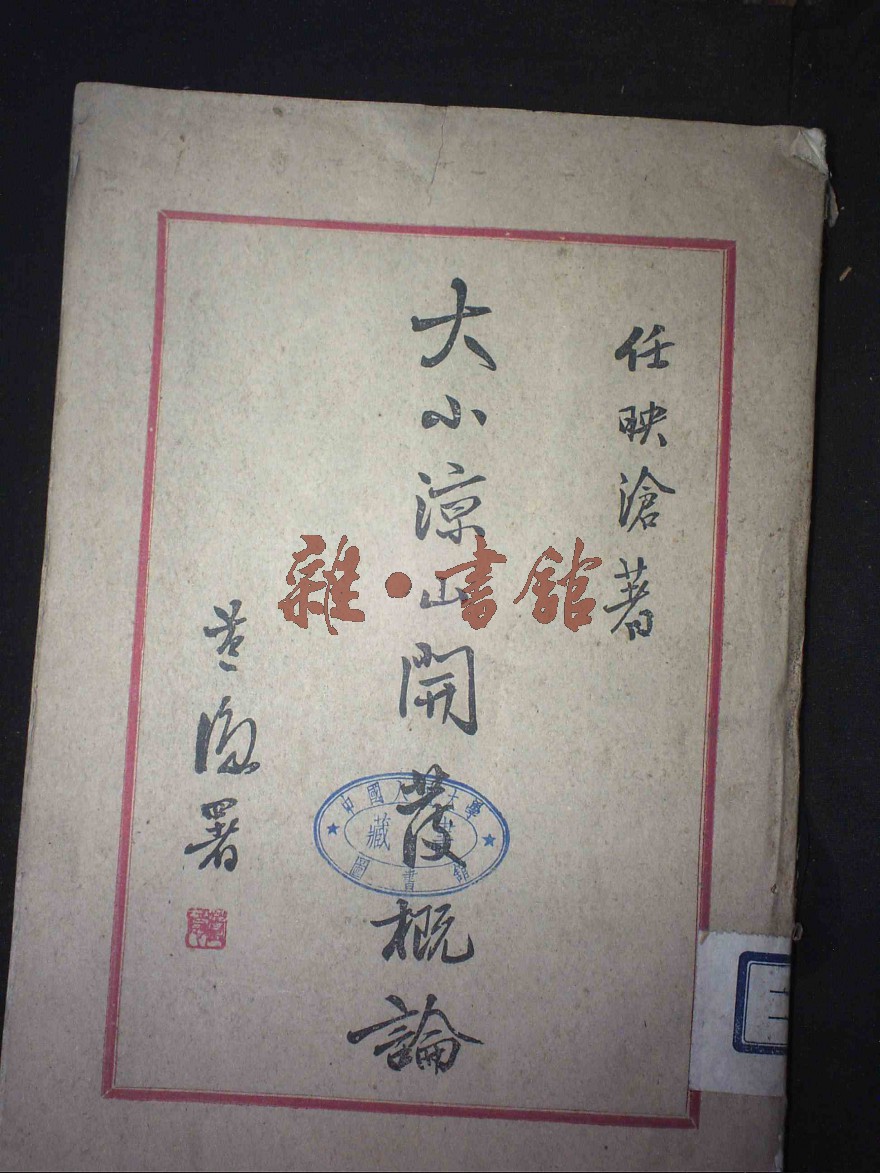 任映滄著
大小涼山開發概論
署
雜·書館
中國人大學
藏書
圖書館